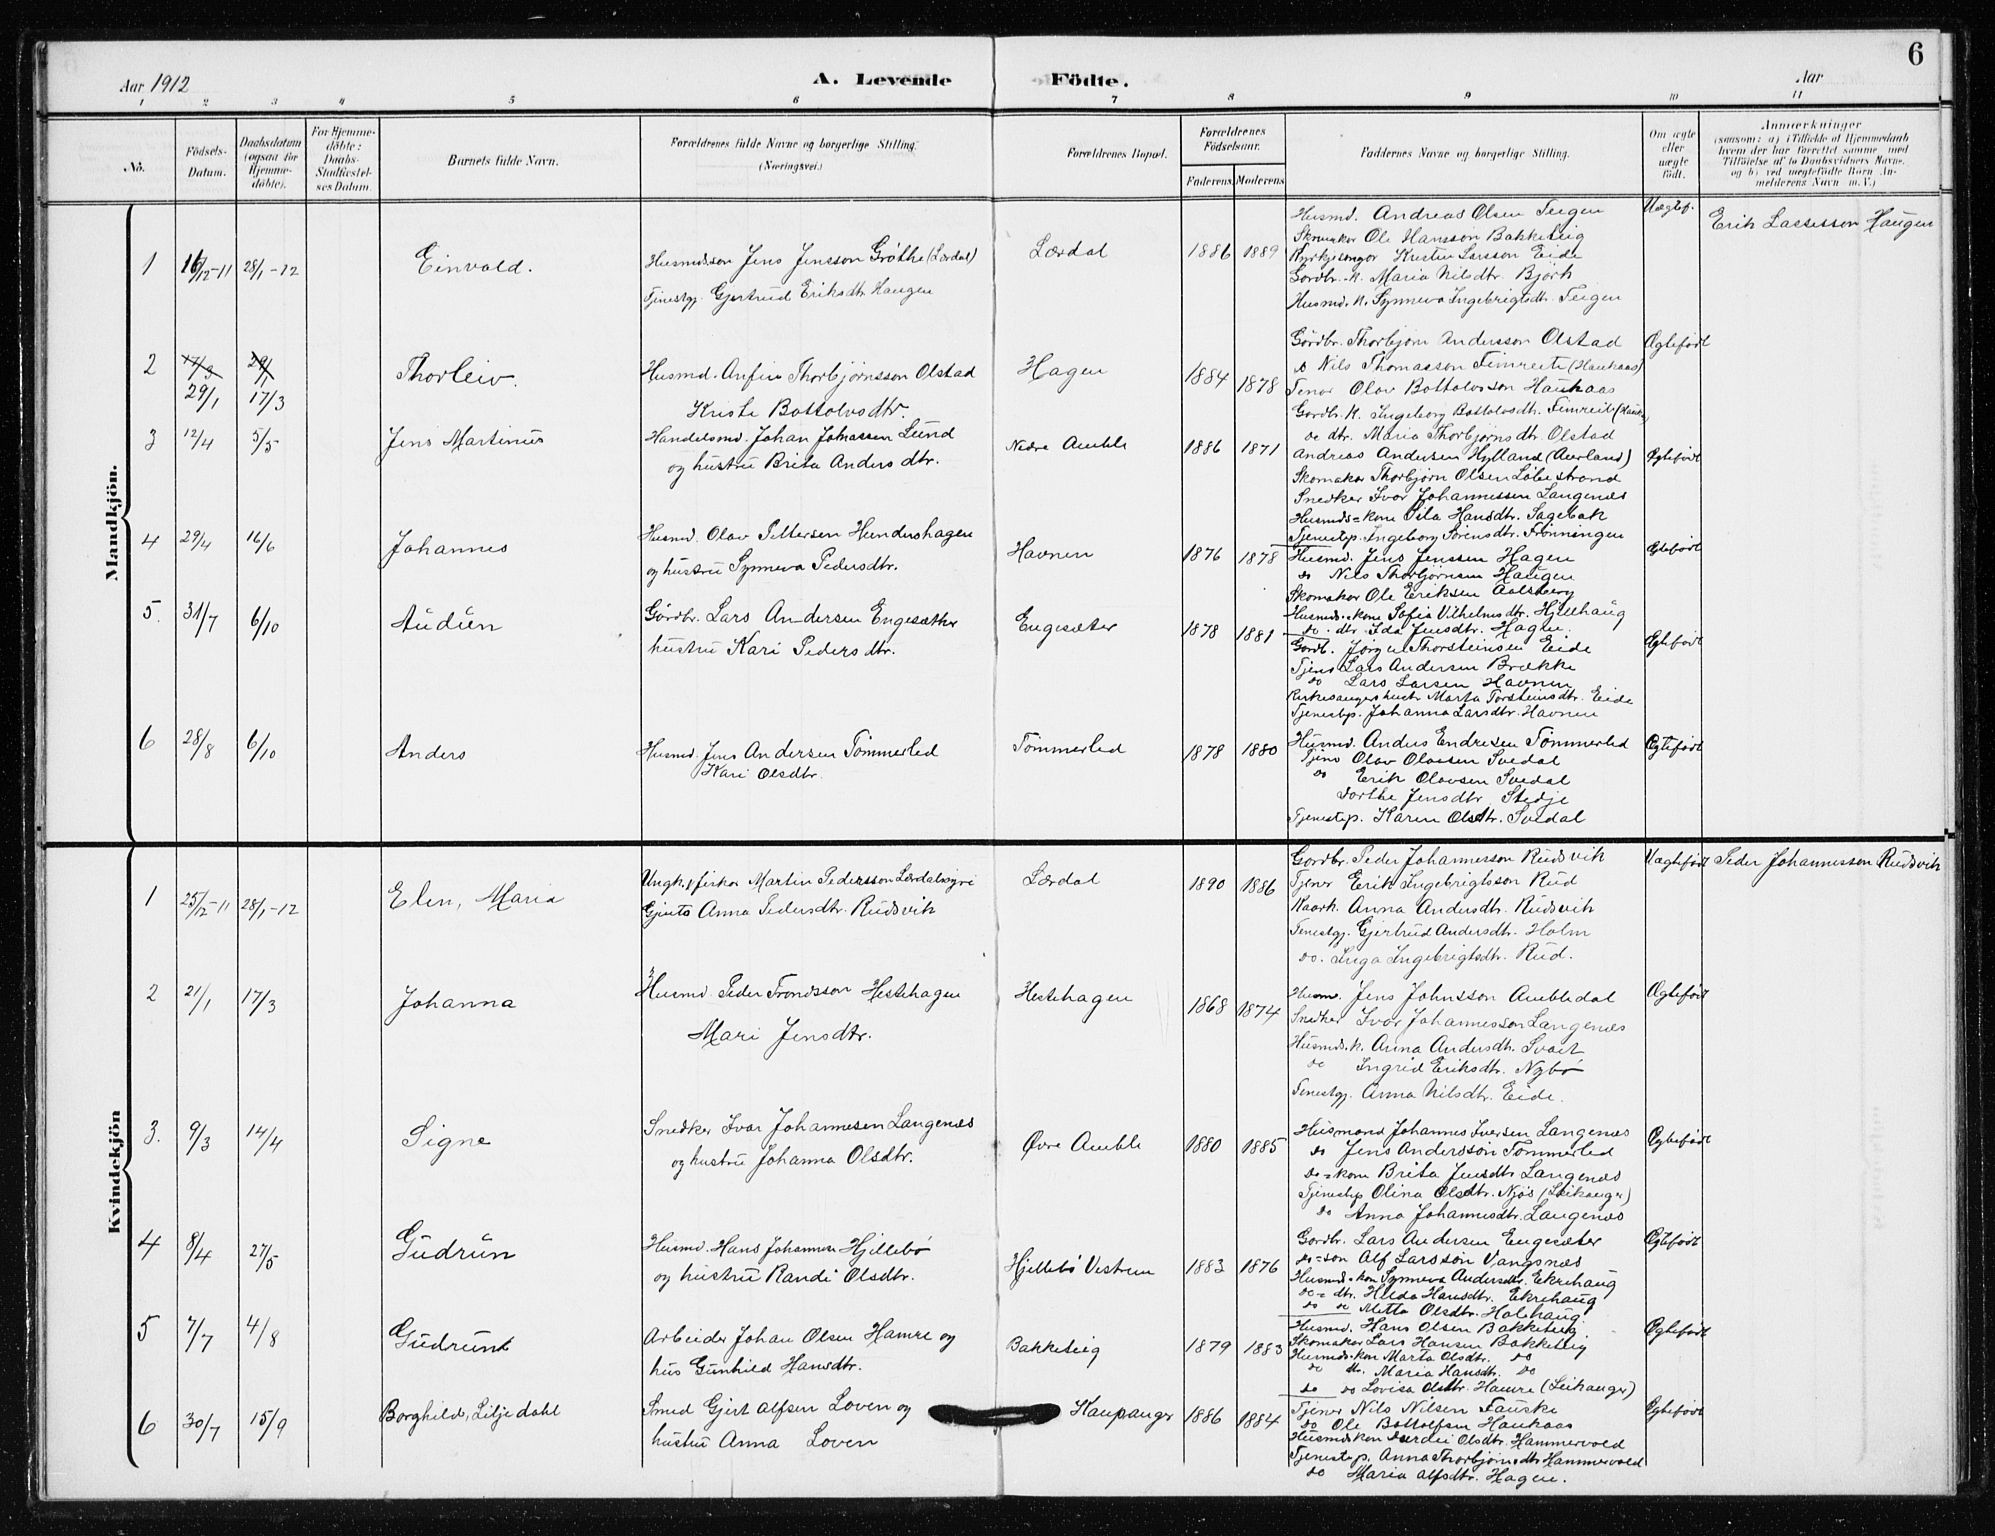 6
Aar 1912
A. Levende Födte.
Aar
1 2 3 4 5 6 7 8 9 10 11
No.
Födsels-Datum.
Daabsdatum (ogsaa for Hjemme-døbte).
For Hjemme-døbte: Daabs-Stadfæstel-ses Datum.
Barnets fulde Navn.
Forældrenes fulde Navne og borgerlige Stilling. (Næringsvei.)
Forældrenes Bopæl.
Forældrenes Födselsaar.
Faderens Moderens
Faddernes Navne og borgerlige Stilling.
Om ægte eller uægte födt.
Anmærkninger
(saasom: a) i Tilfælde af Hjemmedaab
hvem der har forrettet samme med
Tilföielse af to Daabsvidners Navne.
og b) ved uægtefödte Börn An-
melderens Navn m. V.)
Mandkjön.
1 16/12-11 28/1-12 Einvald.
Husmdsson Jens Jensson Grøthe (Lærdal)
Tjenestgj. Gjertrud Eriksdtr. Haugen
Lærdal 1886 1889
Husmd. Andreas Olsen Teigen
Skomaker Ole Hansson Bakketeig
Kyrkjesongar Kristen Larsson Eide
Gordbr. k. Maria Nilsdtr. Björk
Husmd. k. Synneva Ingebrigtsdtr. Teigen
Uægtef.
Erik Lassesson Haugen
2 17/3 29/1
29/1 17/3
Thorleiv.
Husmd. Anfin Thorbjørnsson Olstad
Kristi Bottolvsdtr.
Hagen 1884 1878
Gordbr. Thorbjørn Andersson Olstad
do Nils Thomasson Fimreite (Haukaas)
Tenar Olav Bottolvsson Haukaas
Gordbr. k. Ingeborg Bottolvsdtr. Fimreite
do dtr. Maria Thorbjørnsdtr. Olstad
Ægtefødt
3 12/4 5/5 Jens Martinus
Handelsmd. Johan Johnassen Lund
og hustru Brita Andersdtr.
Nedre Amble 1886 1871
Andreas Andersen Hylland (Aurland)
Skomaker Thorbjørn Olsen Løbestrand
Snedker Ivar Johannessen Langenæs
Husmds-kone Sila Hansdtr. Sagebak
Tjenestep. Ingeborg Sørensdtr. Frønningen
Ægtefødt
4 29/4 16/6 Johannes
Husmd. Olav Pettersen Hundershagen
og hustru Synneva Pedersdtr.
Havnen 1876 1878
Husmd. Jens Jenssen Hagen
do Nils Thorbjørnsen Haugen
Skomaker Ole Eriksen Aalsberg
Husmds.-kone Sofia Vilhelmsdtr. Hjellhaug
do. dtr. Ida Jensdtr. Hagen.
Ægtefødt
5. 31/7 6/10 Audun
Gårdbr. Lars Andersen Engesæther
hustru Kari Pedersdtr.
Engesæter 1878 1881
Gordb. Jørgen Thorsteinsen Eide
Tjener Lars Andersen Brække
do Lars Larsen Havnen
Kirkesangershustr. Marta Torsteinsdtr. Eide
Tjenestep. Johanna Larsdtr. Havnen
Ægtefødt
6 28/8 6/10 Anders
Husmd. Jens Andersen Tømmerlid
Kari Olsdtr.
Tømmerlid 1878 1880
Husmd. Anders Endresen Tømmerlid
Tjener Olav Olavsen Svedal
do Erik Olavsen Svedal
Dorthe Jensdtr. Stedje
Tjenestep. Karen Olsdtr. Svedal
Ægtefødt
Kvindekjön
1 25/12-11 28/1-12 Elen, Maria
Ungk, fisker Martin Pedersson Lærdalsøyri
Gjenta Anna Pedersdtr. Rudsvik
Lærdal 1890 1886
Gordbr. Peder Johannesson Rudsvik
Tjener Erik Ingebrigtsson Rud
Kaark. Anna Andersdtr. Rudsvik
Tenestgj. Gjertrud Andersdtr. Holm
do. Inga Ingebrigtsdtr. Rud.
Uægtefødt
Peder Johannesson Rudsvik
2 21/1 17/3 Johanna
Husmd. Peder Trondsson Hestehagen
Mari Jensdtr.
Hestehagen 1868 1874
Husm. Jens Johnsson Ambledal
Snedker Ivar Johannesson Langenæs
Husmds.k. Anna Andersdtr. Svait
do Ingrid Eriksdtr. Nybø
Tenestgj. Anna Nilsdtr. Eide.
Ægtefødt
3. 9/3 14/4 Signe
Snedker Ivar Johannesen Langenæs
og hustru Johanna Olsdtr.
Øvre Amble 1880 1885
Husmand Johannes Iversen Langenæs
do Jens Andersson Tømmerlid
do-kone Brita Jensdtr. Langenæs
Tjenestep Olina Olsdtr. Njøs (Leikanger)
do Anna Johannesdtr. Langenæs
Ægtefødt
4 8/4 27/5 Gudrun
Husmd. Hans Johannesen Hjellebø
og hustru Randi Olsdtr.
Hjellebø Vestrem 1883 1876
Gordbr. Lars Andersen Engesæter
do-son Alf Larsson Vangsnæs
Husmds-kone Synneva Andersdtr. Ekrehaug
do-dtr. Hilda Hansdtr. Ekrehaug
do do Metta Olsdtr. Halehaug
Ægtefødt
5 7/7 4/8 Gudrun
Arbeider Johan Olsen Hamre og
hus Gunhild Hansdtr.
Bakketeig 1879 1883
Husmd. Hans Olsen Bakketeig.
Skomaker Lars Hansen Bakketeig
Husmds.kone Marta Olsdtr. do
do dtr. Maria Hansdtr. do
do do Lovisa Olsdtr. Hamre (Leikanger)
Ægtefødt
6 30/7 15/9 Borghild, Liljedahl
Smed Gjert Alfsen Loven og
hustru Anna Loven
Kaupanger 1886 1884
Tjener Nils Nilsen Fauske
do Ole Bottolfsen Haukaas
Husmdskone Durdei Olsdtr. Hammervold
Tjenestep. Anna Thorbjørnsdtr Hammervold
do Maria Alfsdtr. Hagen.
Ægtefødt